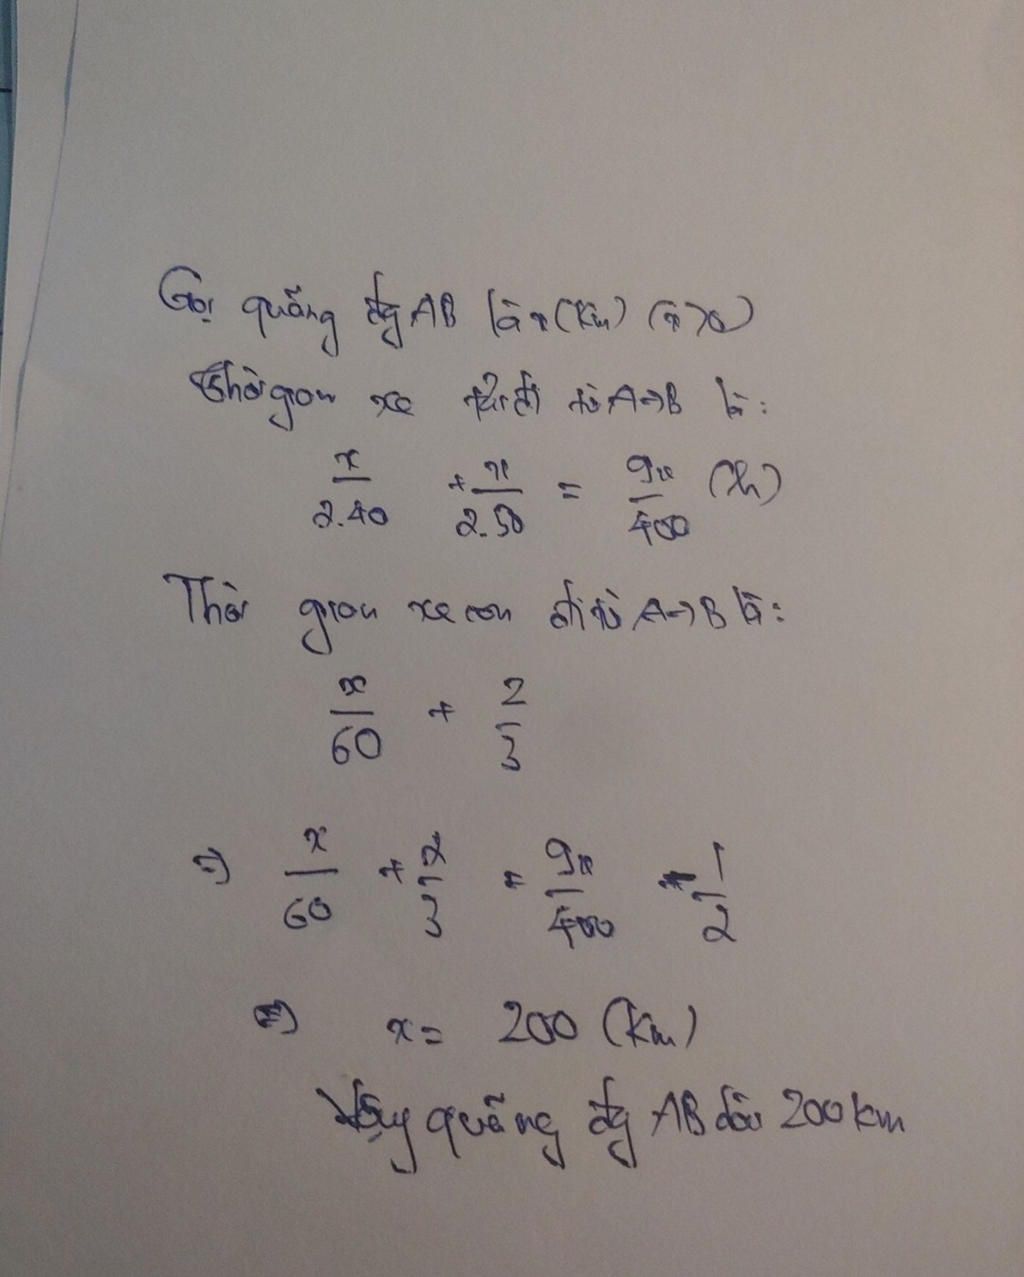 Gọi quãng đg AB là x (km) (x>0)
Thời gian xe tải đi từ A→B là:
x/2.40 + x/2.50 = 9x/400 (h)
Thời gian xe con đi từ A→B là:
x/60 + 2/3
=> x/60 + 2/3 = 9x/400 - 1/2
=> x = 200 (km)
Vậy quãng đg AB dài 200km